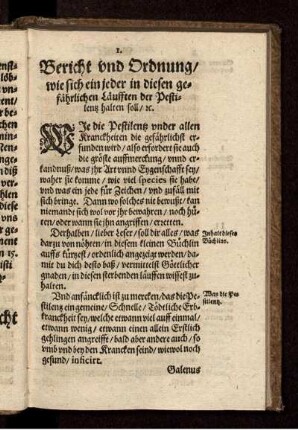 1.
Bericht vnd Ordnung/
wie sich ein jeder in diesen ge-
fährlichen Läufften der Pesti-
lentz halten soll/ ꝛc.
WJe die Pestilentz vnder allen
Kranckheiten die gefährlichst er-
funden wird/ also erfordert sie auch
die gröste auffmerckung/ vnnd er-
kandnuß/ was jhr Art vnnd Eygenschafft sey/
waher sie komme/ wie viel species sie habe/
vnd was ein jede für Zeichen/ vnd zufäll mit
sich bringe. Dann wo solches nit bewußt/ kan
niemandt sich wol vor jhr bewahren/ noch hü-
ten/ oder wann sie jhn angriffen/ erretten.
Derhalben/ lieber Leser/ soll dir alles/ was
darzu von nöhten/ in diesem kleinen Büchlin
auffs kürtzest/ ordenlich angezeigt werden/ da-
mit du dich desto baß/ vermittelst Göttlicher
gnaden/ in diesen sterbenden läuffen wissest zu-
halten.
Jnhalt dieses
Büchlins.
Vnd anfäncklich ist zu mercken/ das die Pe-
stilentz ein gemeine/ Schnelle/ Tödtliche Erb-
kranckheit sey/ welche etwann viel auff einmal/
etwann wenig/ etwann einen allein Erstlich
gehlingen angreifft/ bald aber andere auch/ so
vmb vnd bey den Krancken seind/ wiewol noch
gesund/ inficirt.
Was die Pe-
stilentz.
Galenus